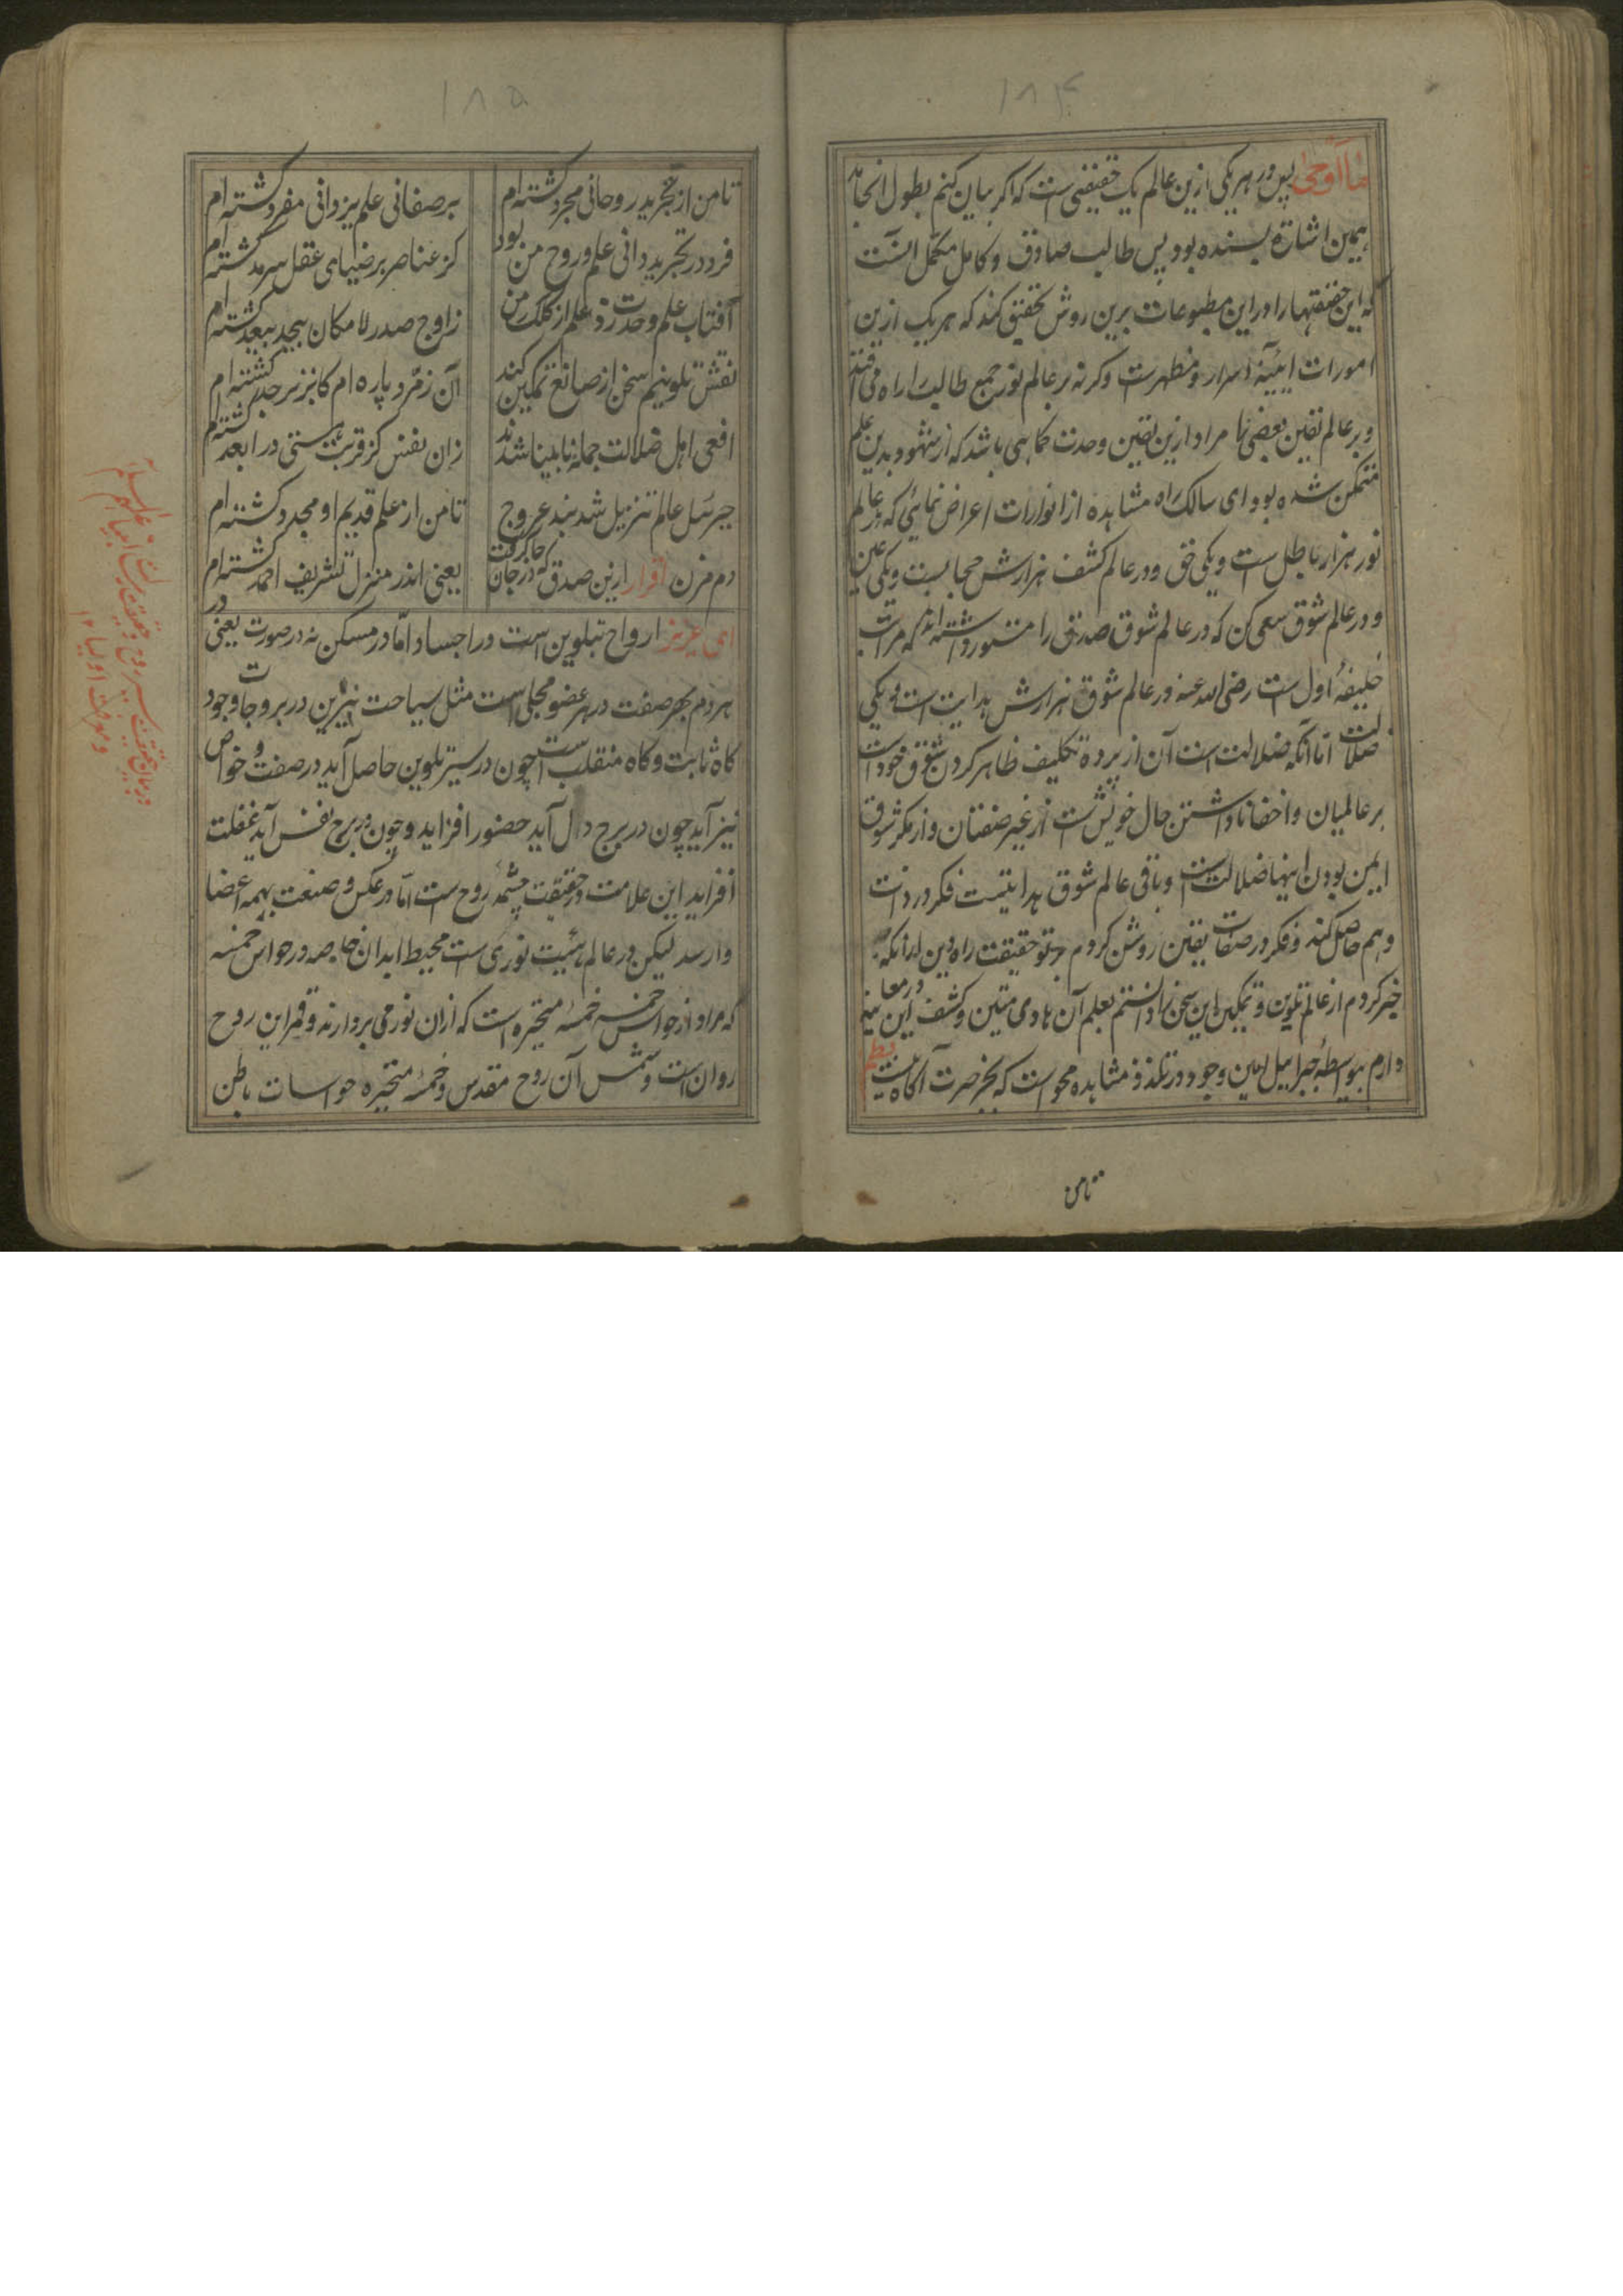 ۱۸۴
ما اوحی پس در هر یکی ازین عالم یک حقیقتی ست که اکر بیان کنم بطول انجامد
همین اشارة بسنده بود پس طالب صادق و کامل مکمل آنست
که این حقیقتها را در این مطبوعات برین روش تحقیق کند که هر یک ازین
امورات آیینه اسرار و مظهرست وکرنه بر عالم نور جمیع طالب را راه می افتد
و بر عالم یقین بعضی را مراد ازین یقین وحدت کماهی باشد که از شهود بدین علم
متمکن شده بود ای سالک راه مشاهده از انوارات اعراض نمایی که در عالم
نور هزار باطل ست و یکی حق و در عالم کشف هزارش حجابست و یکی عین
و در عالم شوق سعی کن که در عالم شوق صدیق را مستور داشته اند که مراتب
خلیفهٔ اول ست رضی الله عنه در عالم شوق هزارش هدایت است و یکی
ضلالت اما آنکه ضلالت است آن از پردهٔ تکلیف ظاهر کردن شوق خود است
بر عالمیان و اخفا ناداشتن حال خویش ست از غیر صفتان و از مکر شوق
ایمن بودن اینها ضلالت است و باقی عالم شوق هدایتست فکر در ذات
وهم حاصل کند و فکر در صفات یقین روشن کردم بر تو حقیقت راه دین
خبر کردم از عالم تلوین و تمکین این سخن را دانستم بعلم آن هادی متین و کشف این نیز در معا
دارم بواسطهٔ جبراییل امین وجود در تلذذ مشاهده محو است که بخبر صرت آکاه نیست نظم
تامن
۱۸۵
تا من از تجرید روحانی مجرد کشته ام
بر صفاتی علم یزدانی مفرد کشته ام
فرد در تجرید دانی علم و روح من بود
کز عناصر بر ضیهای عقل سرمد کشته ام
آفتاب علم وحدت زد علم از کلک من
زاوج صدر لا مکان بیحد بیعد کشته ام
نقش تلوینیم سخن از صانع تمکین کند
آن زمرد پاره ام کانزبرجد کشته ام
افعی اهل ضلالت جمله نابینا شدند
زان نفس کز قربت هستی در ابعد کشته ام
جبرئیل عالم تنزیل شد بند عروج
تا من از علم قدیم او مجدد کشته ام
دم مزن اقرار ازین صدق که در جان جا کرفت
یعنی اندر منزل تشریف احمد کشته ام
ای عزیز ارواح بتلوین است در اجساد اما در مسکن نه در صورت یعنی در
هر دم بهر صفت در هر عضو مجلی است مثل سیاحت نیرین در بروجات وجود
کاه ثابت و کاه منقلب است چون در سیر تلوین حاصل آید در صفت خواص
نیز آید چون در برج دل آید حضور افزاید و چون در برج نفس آید غفلت
افزاید این علامت در حقیقت چشمهٔ روح ست اما در عکس و صنعت بهمه اعضا
وارسد لیکن در عالم هئیت نوری ست محیط ابدان خاصه در حواس خمسه
که مراد از حواس خمسه خمسهٔ متحیره است که از آن نور می بردارند و قمر این روح
روان است و شمس آن روح مقدس و خمسهٔ متحیره حواسات باطن
در بیان حقیقت سیر روح و حقیقت رسالت انبیا علیهم السلام
و معرفت اولیا ۱۲